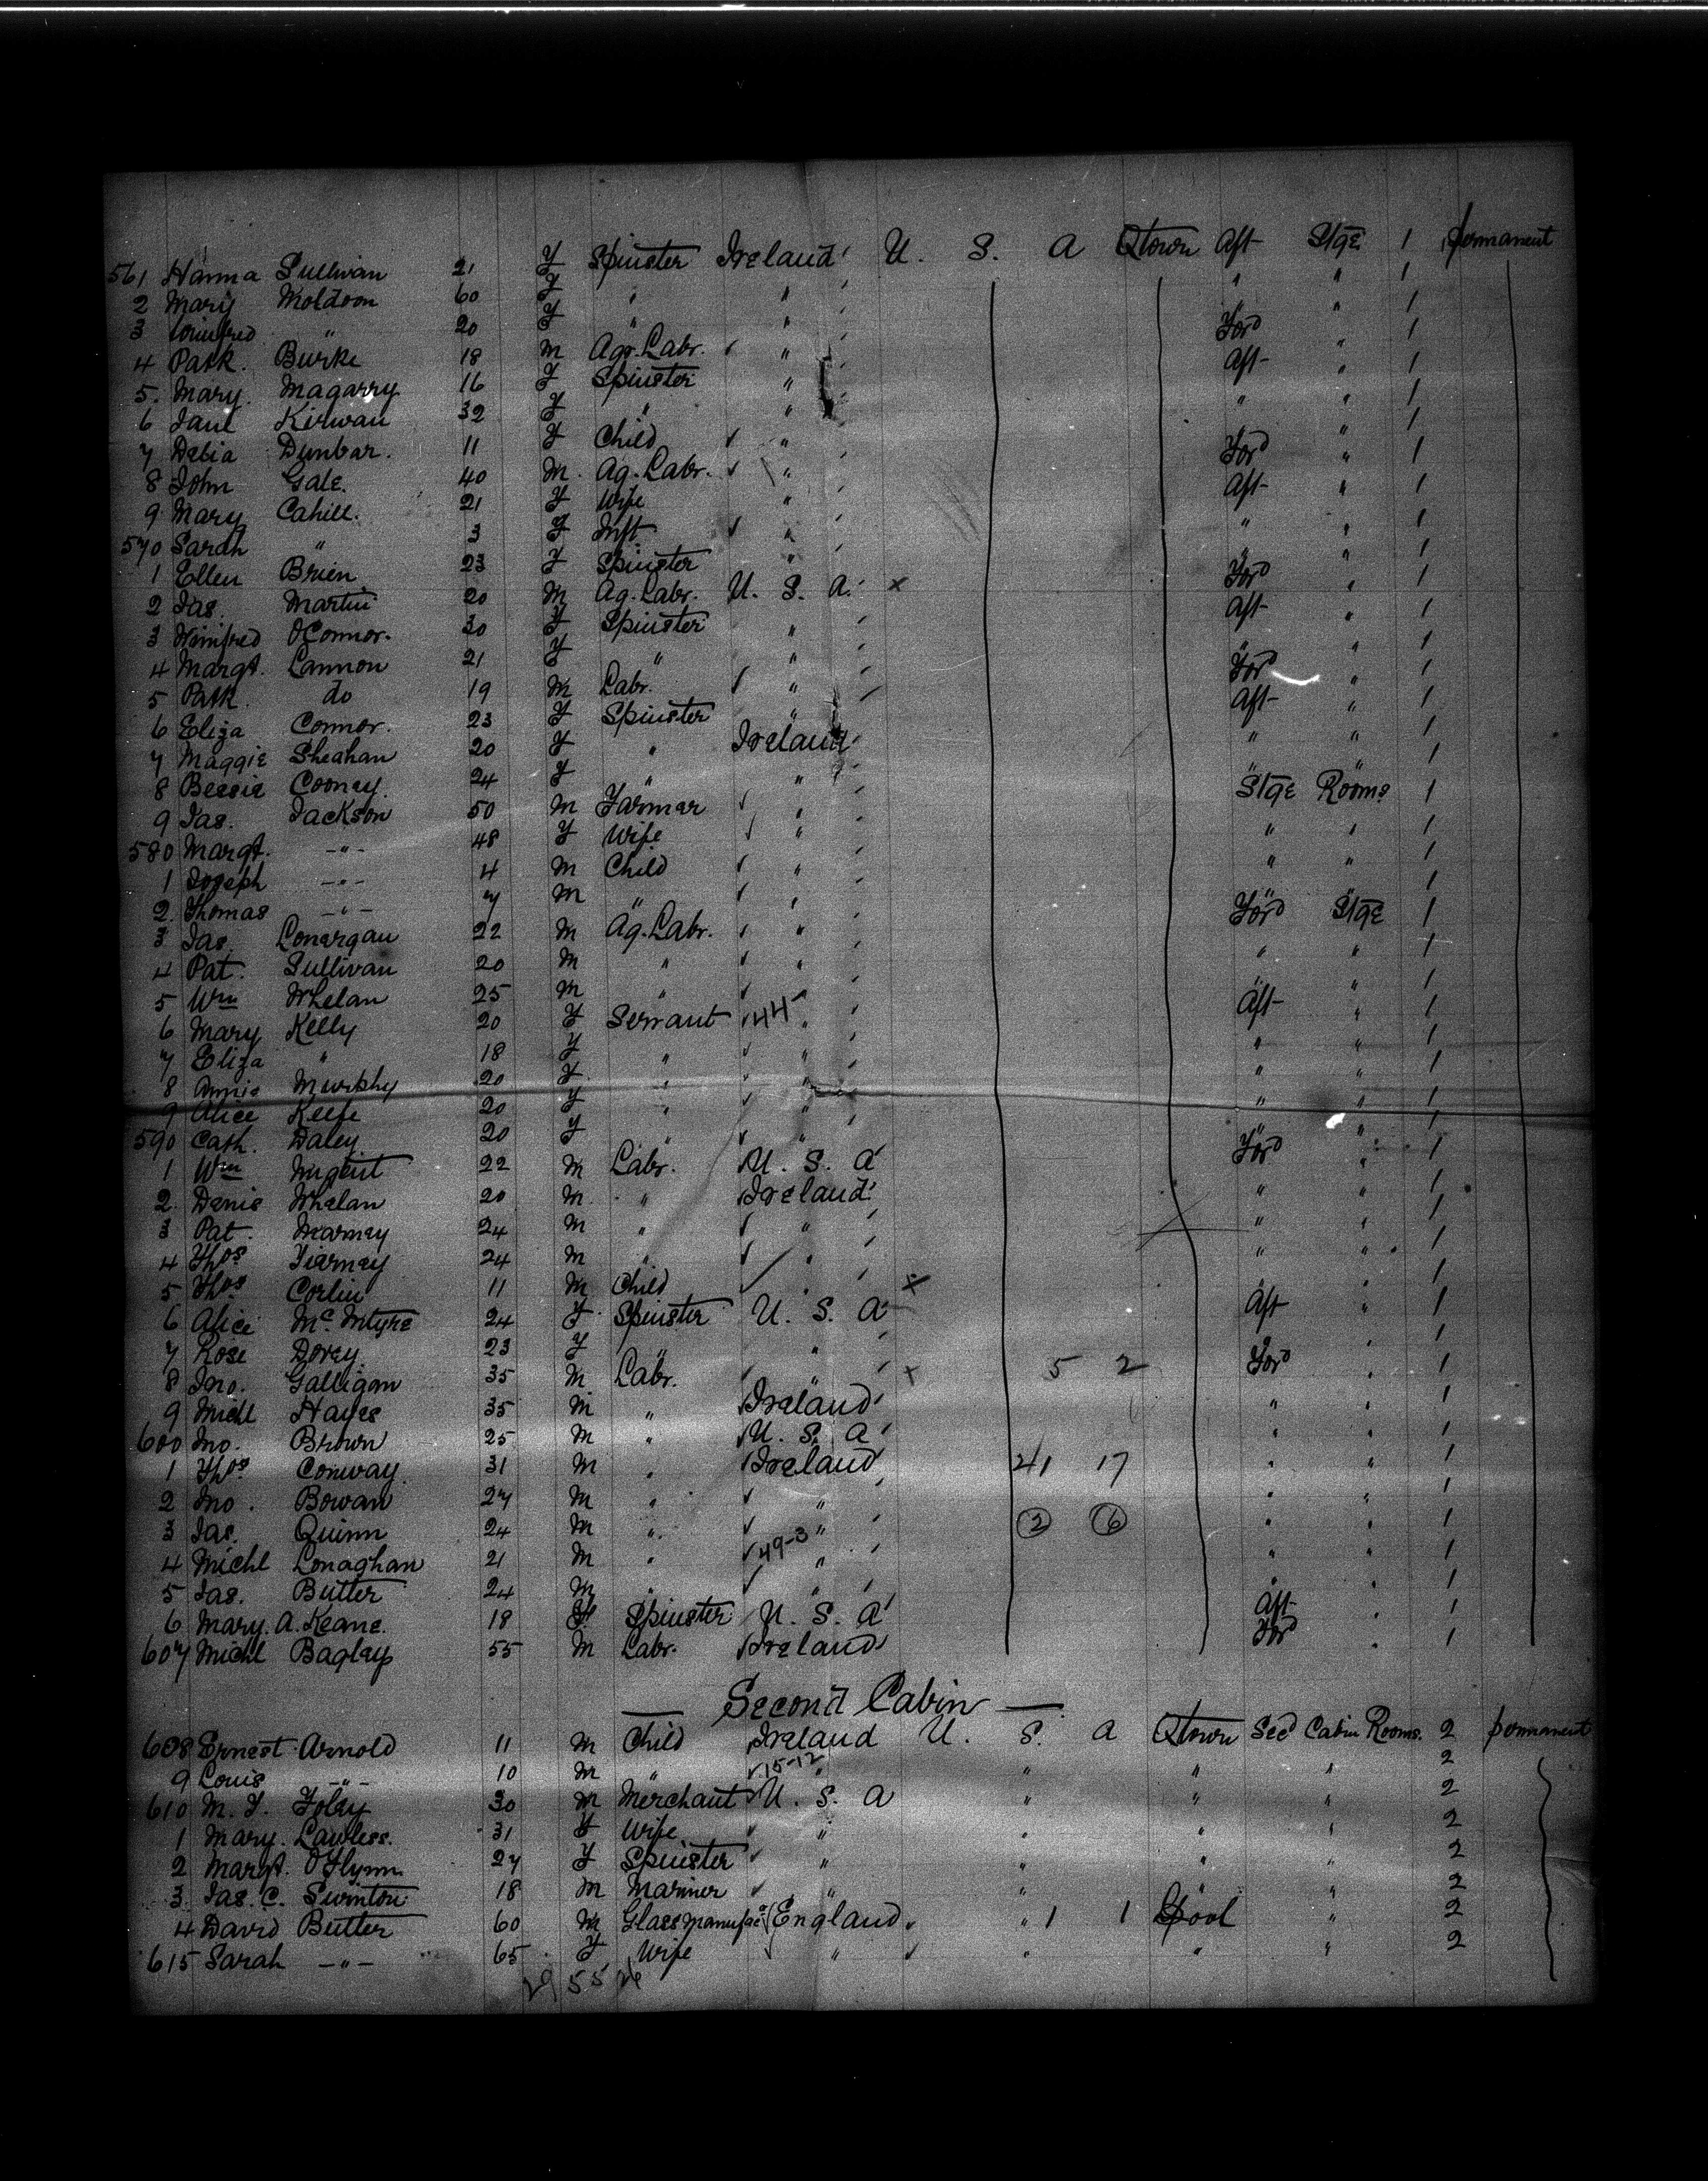 561 Hanna Sullivan 21 F Spinster Ireland U. S. A Qtown Aft Stge 1 permanent
2 Mary Moldoon 60 F " " " " 1
3 Winifred " 20 F " " Ford " 1
4 Patk. Burke 18 M Agr. Labr. " Aft " 1
5. Mary. Magarry 16 F Spinster " " " 1
6 Jane Kirwan 32 F " " " " 1
7 Delia Dunbar. 11 F Child " Ford " 1
8 John Gale. 40 M. Ag. Labr. " Aft " 1
9 Mary Cahill. 21 F Wife " " " 1
570 Sarah " 3 F Inft " " " 1
1 Ellen Brien 23 F Spinster " Ford " 1
2 Jas. Martin 20 M Ag. Labr. U. S. A. x Aft " 1
3 Winifred OConnor. 30 F Spinster " " " 1
4 Margt. Lannon 21 F " " Ford " 1
5 Patk. do 19 M Labr. " Aft " 1
6 Eliza Connor. 23 F Spinster " " " 1
7 Maggie Sheahan 20 F " Ireland " " 1
8 Bessie Cooney. 24 F " " Stge Rooms 1
9 Jas. Jackson 50 M Farmer " " " 1
580 Margt. -"- 48 F Wife " " " 1
1 Joseph -"- 4 M Child " " " 1
2. Thomas -"- 7 M " " Ford Stge 1
3 Jas. Lonergan 22 M Ag. Labr. " " " 1
4 Pat. Sullivan 20 M " " " " 1
5 Wm Whelan 25 M " " Aft " 1
6 Mary Kelly 20 F Servant 144 " " " 1
7 Eliza " 18 F " " " " 1
8 Annie Murphy 20 F. " " " " 1
9 Alice Keefe 20 F " " " " 1
590 Cath. Daley 20 F " " Ford " 1
1 Wm Nugent 22 M Labr. U. S. A " " 1
2. Denis Whelan 20 M. " Ireland " " 1
3 Pat. 24 M " " " " 1
4 Thos Tierney 24 M " " " " 1
5 Thos. Corlin 11 M Child " x Aft " 1
6 Alice McIntyre 24 F. Spinster U. S. A " " 1
7 Rose Dorey. 23 F " " Ford " 1
8 Jno. Galligan 35 M Labr. " x 5 2 " " 1
9 Michl Hayes 35 M " Ireland " " 1
600 Jno. Brown 25 M " U. S. A " " 1
1 Thos. Conway. 31 M " Ireland 21 17 " " 1
2 Jno. Bowan 27 M " " " " 1
3 Jas. Quinn 24 M " " 2 6 " " 1
4 Michl Lonaghan 21 M " 49-3 " " " 1
5 Jas. Butler 24 M " " Aft " 1
6 Mary. A. Keane. 18 F Spinster U. S. A Ford " 1
607 Michl Bagley 55 M Labr. Ireland " 1
Second Cabin
608 Ernest Arnold 11 M Child Ireland U. S. A Qtown Secd Cabin Rooms. 2 permanent
9 Louis -"- 10 M " 15-12 " " " " 2
610 M. J. Foley 30 M Merchant U. S. A " " " 2
1 Mary. Lawless. 31 F Wife " " " " 2
2 Margt. O'Flynn. 27 F Spinster " " " " 2
3 Jas. C. Swinton 18 M Mariner " " " " 2
4 David Butler 60 M Glass manufacr England " 1 1 Lpool " 2
615 Sarah -"- 65 F Wife " " " " 2
29 55 26